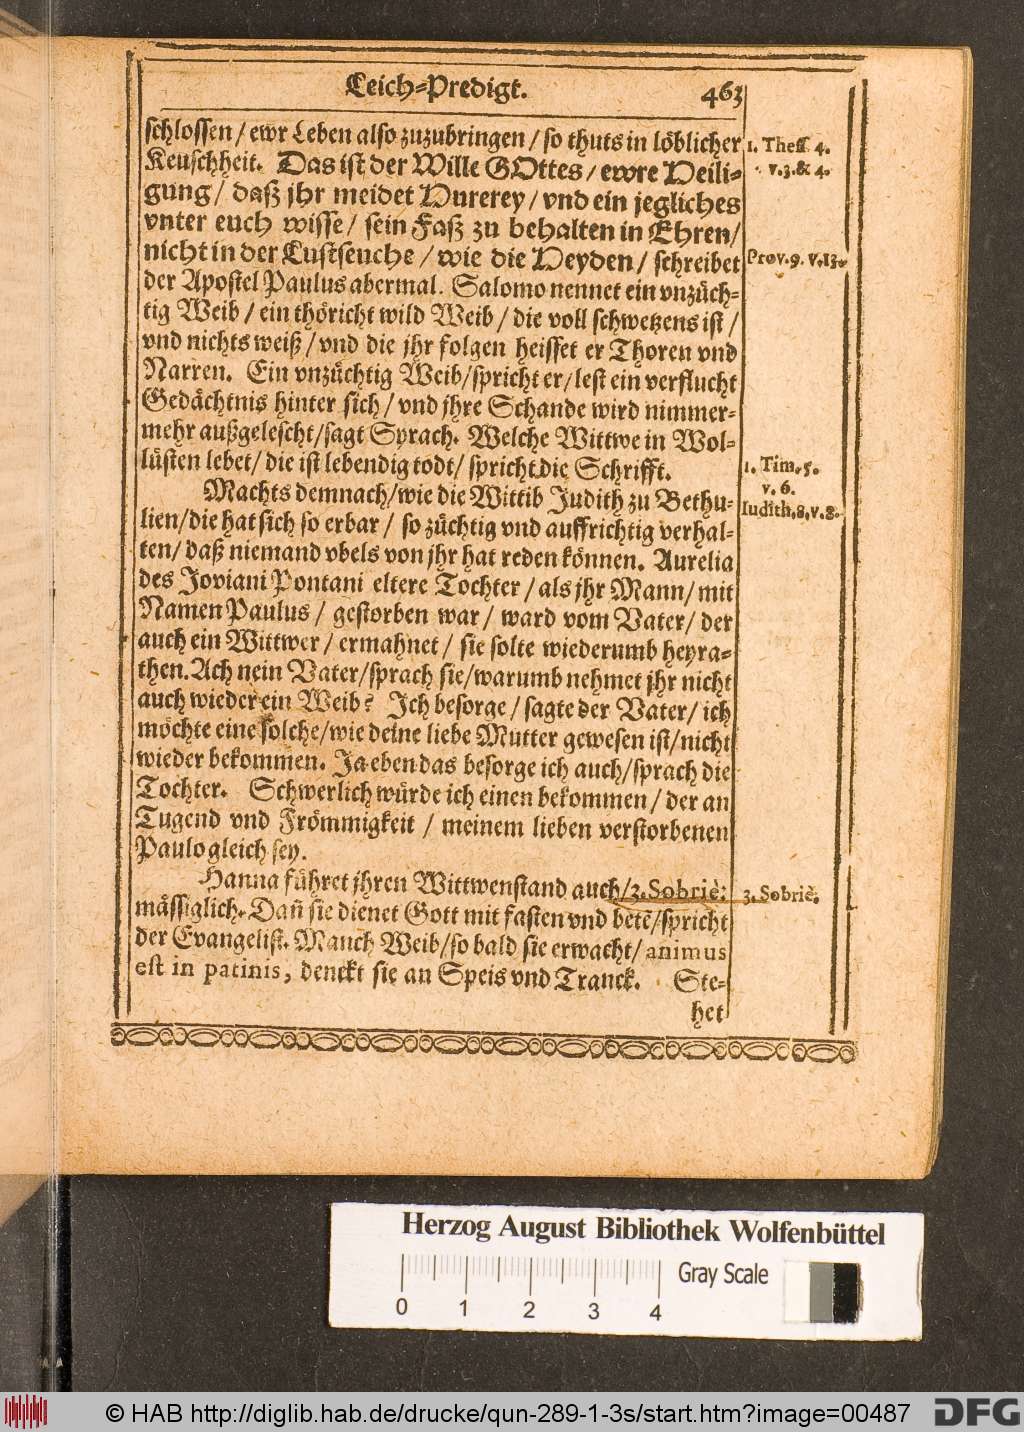 Leich-Predigt. 463
schlossen / ewr Leben also zuzubringen / so thuts in löblicher
Keuschheit. Das ist der Wille GOttes / ewre Heili-
gung / daß jhr meidet Hurerey / vnd ein jegliches
vnter euch wisse / sein Faß zu behalten in Ehren /
nicht in der Lustseuche / wie die Heyden / schreibet
der Apostel Paulus abermal. Salomo nennet ein vnzüch-
tig Weib / ein thöricht wild Weib / die voll schwetzens ist /
vnd nichts weiß / vnd die jhr folgen heisset er Thoren vnd
Narren. Ein vnzüchtig Weib / spricht er / lest ein verflucht
Gedächtnis hinter sich / vnd jhre Schande wird nimmer-
mehr außgelescht / sagt Syrach. Welche Wittwe in Wol-
lüsten lebet / die ist lebendig todt / spricht die Schrifft.
Machts demnach / wie die Wittib Judith zu Bethu-
lien / die hat sich so erbar / so züchtig vnd auffrichtig verhal-
ten / daß niemand vbels von jhr hat reden können. Aurelia
des Joviani Pontani eltere Tochter / als jhr Mann / mit
Namen Paulus / gestorben war / ward vom Vater / der
auch ein Wittwer / ermahnet / sie solte wiederumb heyra-
then. Ach nein Vater / sprach sie / warumb nehmet jhr nicht
auch wieder ein Weib? Ich besorge / sagte der Vater / ich
möchte eine solche / wie deine liebe Mutter gewesen ist / nicht
wieder bekommen. Ja eben das besorge ich auch / sprach die
Tochter. Schwerlich würde ich einen bekommen / der an
Tugend vnd Frömmigkeit / meinem lieben verstorbenen
Paulo gleich sey.
Hanna führet jhren Wittwenstand auch / 3. Sobriè:
mässiglich. Dañ sie dienet Gott mit fasten vnd betē / spricht
der Evangelist. Manch Weib / so bald sie erwacht / animus
est in patinis, denckt sie an Speis vnd Tranck. Ste-
het
1. Thess. 4.
v. 3. & 4.
Prov. 9. v. 13.
1. Tim. 5.
v. 6.
Iudith. 8. v. 8.
3. Sobriè.
Herzog August Bibliothek Wolfenbüttel
Gray Scale
0 1 2 3 4
© HAB http://diglib.hab.de/drucke/qun-289-1-3s/start.htm?image=00487
DFG